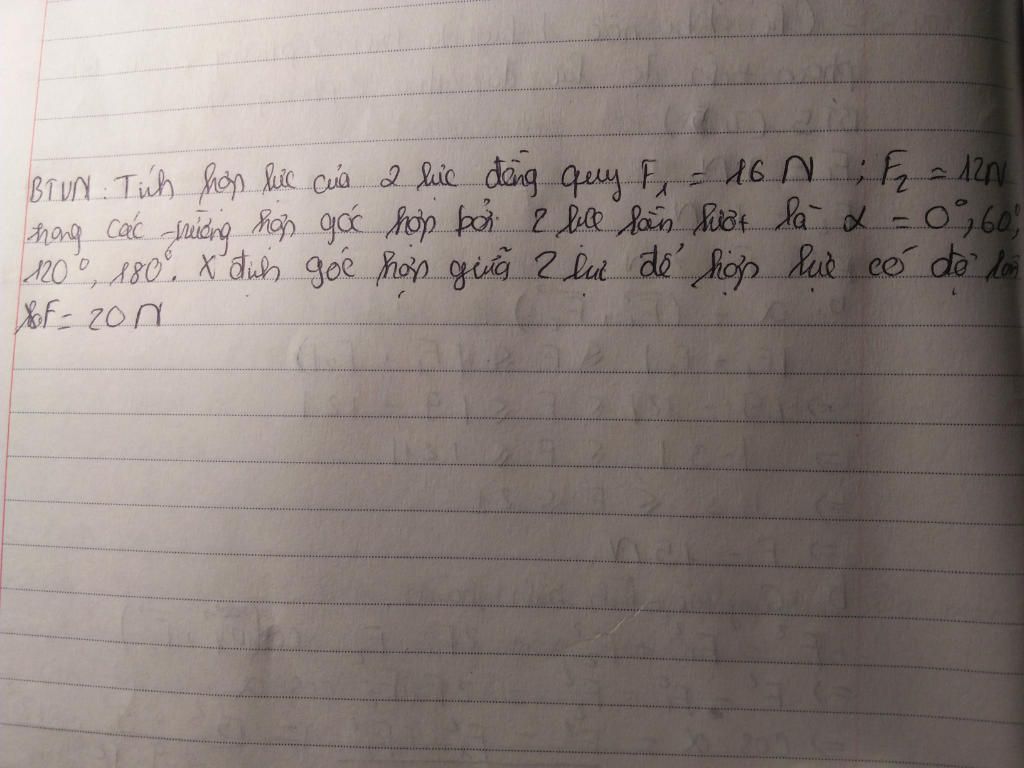 BTVN: Tính hợp lực của 2 lực đồng quy F₁ = 16 N ; F₂ = 12N
trong các trường hợp góc hợp bởi 2 lực lần lượt là α = 0°, 60°,
120°, 180°. X định góc hợp giữa 2 lực để hợp lực có độ lớn
F = 20 N